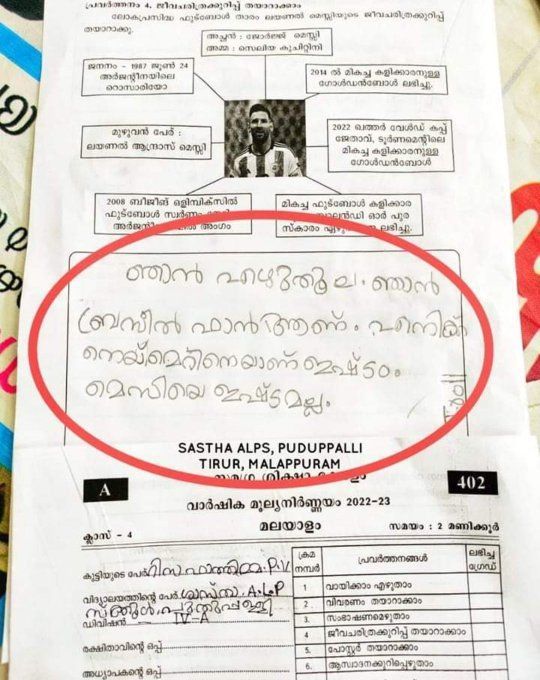 പ്രവർത്തനം 4. ജീവചരിത്രക്കുറിപ്പ് തയാറാക്കാം
ലോകപ്രസിദ്ധ ഫുട്ബോൾ താരം ലയണൽ മെസ്സിയുടെ ജീവചരിത്രക്കുറിപ്പ്
തയാറാക്കൂ.
അച്ഛൻ : ജോർജ്ജ് മെസ്സി
അമ്മ : സെലിയ കുചിറ്റിനി
ജനനം - 1987 ജൂൺ 24
അർജന്റീനയിലെ
റൊസാരിയോ
2014 ൽ മികച്ച കളിക്കാരനുള്ള
ഗോൾഡൻബോൾ ലഭിച്ചു.
മുഴുവൻ പേര് :
ലയണൽ ആന്ദ്രാസ് മെസ്സി
2022 ഖത്തർ വേൾഡ് കപ്പ്
ജേതാവ്, ടൂർണമെന്റിലെ
മികച്ച കളിക്കാരനുള്ള
ഗോൾഡൻബോൾ
2008 ബീജിങ് ഒളിമ്പിക്സിൽ
ഫുട്ബോൾ സ്വർണം
അംഗം
മികച്ച ഫുട്ബോൾ കളിക്കാര
ഓർ പുര
സ്കാരം ലഭിച്ചു.
ഞാൻ എഴുതൂല. ഞാൻ
ബ്രസീൽ ഫാൻ ആണ്. എനിക്ക്
നെയ്മെറിനെയാണ് ഇഷ്ടം
മെസിയെ ഇഷ്ടമല്ല.
SASTHA ALPS, PUDUPPALLI
TIRUR, MALAPPURAM
A
402
വാർഷിക മൂല്യനിർണ്ണയം 2022-23
മലയാളം
ക്ലാസ് - 4
സമയം : 2 മണിക്കൂർ
കുട്ടിയുടെ പേര് റിസ ഫാത്തിമ. P.V
വിദ്യാലയത്തിന്റെ പേര് ശാസ്ത A.L.P
സ്കൂൾ പുതുപ്പള്ളി
ഡിവിഷൻ IV-A
രക്ഷിതാവിന്റെ ഒപ്പ്
അധ്യാപകന്റെ ഒപ്പ്
ക്രമ നമ്പർ പ്രവർത്തനങ്ങൾ ലഭിച്ച ഗ്രേഡ്
1 വായിക്കാം എഴുതാം
2. വിവരണം തയാറാക്കാം
3. സംഭാഷണമെഴുതാം
4 ജീവചരിത്രക്കുറിപ്പ് തയാറാക്കാം
5. പോസ്റ്റർ തയാറാക്കാം
6. ആസ്വാദനക്കുറിപ്പെഴുതാം